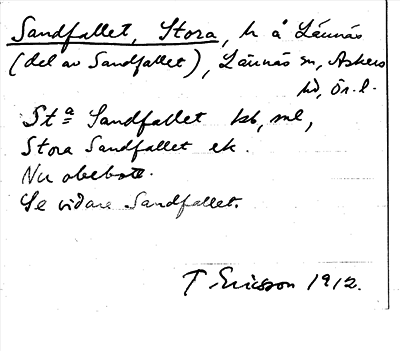 Sandfallet, Stora, h å Lännäs
(del av Sandfallet), Lännäs sn, Askers
hd, Ör. l.
St<sup>a</sup> Sandfallet kb, ml,
Stora Sandfallet ek.
Nu obebott.
Se vidare Sandfallet.
T Ericsson 1912.